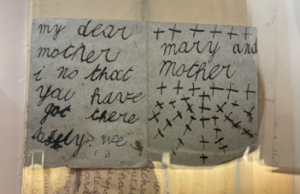 my dear
mother
i no that
you have
got there
safly. we
mary and
mother